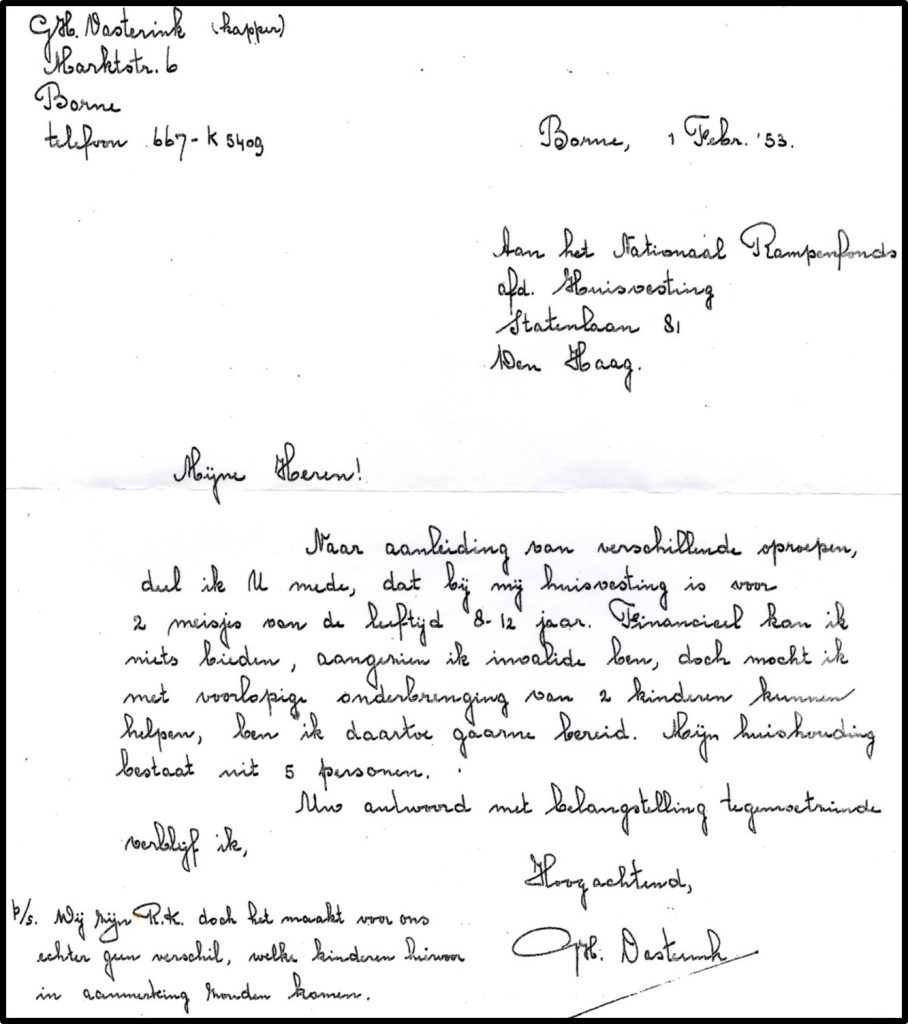 G.H. Oasterink (kapper)
Marktstr. 6
Borne
telefoon 667 - K 5409
Borne, 1 Febr. '53.
Aan het Nationaal Rampenfonds
afd. Huisvesting
Statenlaan 81
Den Haag.
Mijne Heren!
Naar aanleiding van verschillende oproepen,
deel ik U mede, dat bij mij huisvesting is voor
2 meisjes van de leeftijd 8-12 jaar. Financieel kan ik
niets bieden, aangezien ik invalide ben, doch mocht ik
met voorlopige onderbrenging van 2 kinderen kunnen
helpen, ben ik daartoe gaarne bereid. Mijn huishouding
bestaat uit 5 personen.
Uw antwoord met belangstelling tegemoetziende
verblijf ik,
Hoogachtend,
G.H. Oasterink
p/s. Wij zijn R.K. doch het maakt voor ons
echter geen verschil, welke kinderen hiervoor
in aanmerking zouden komen.